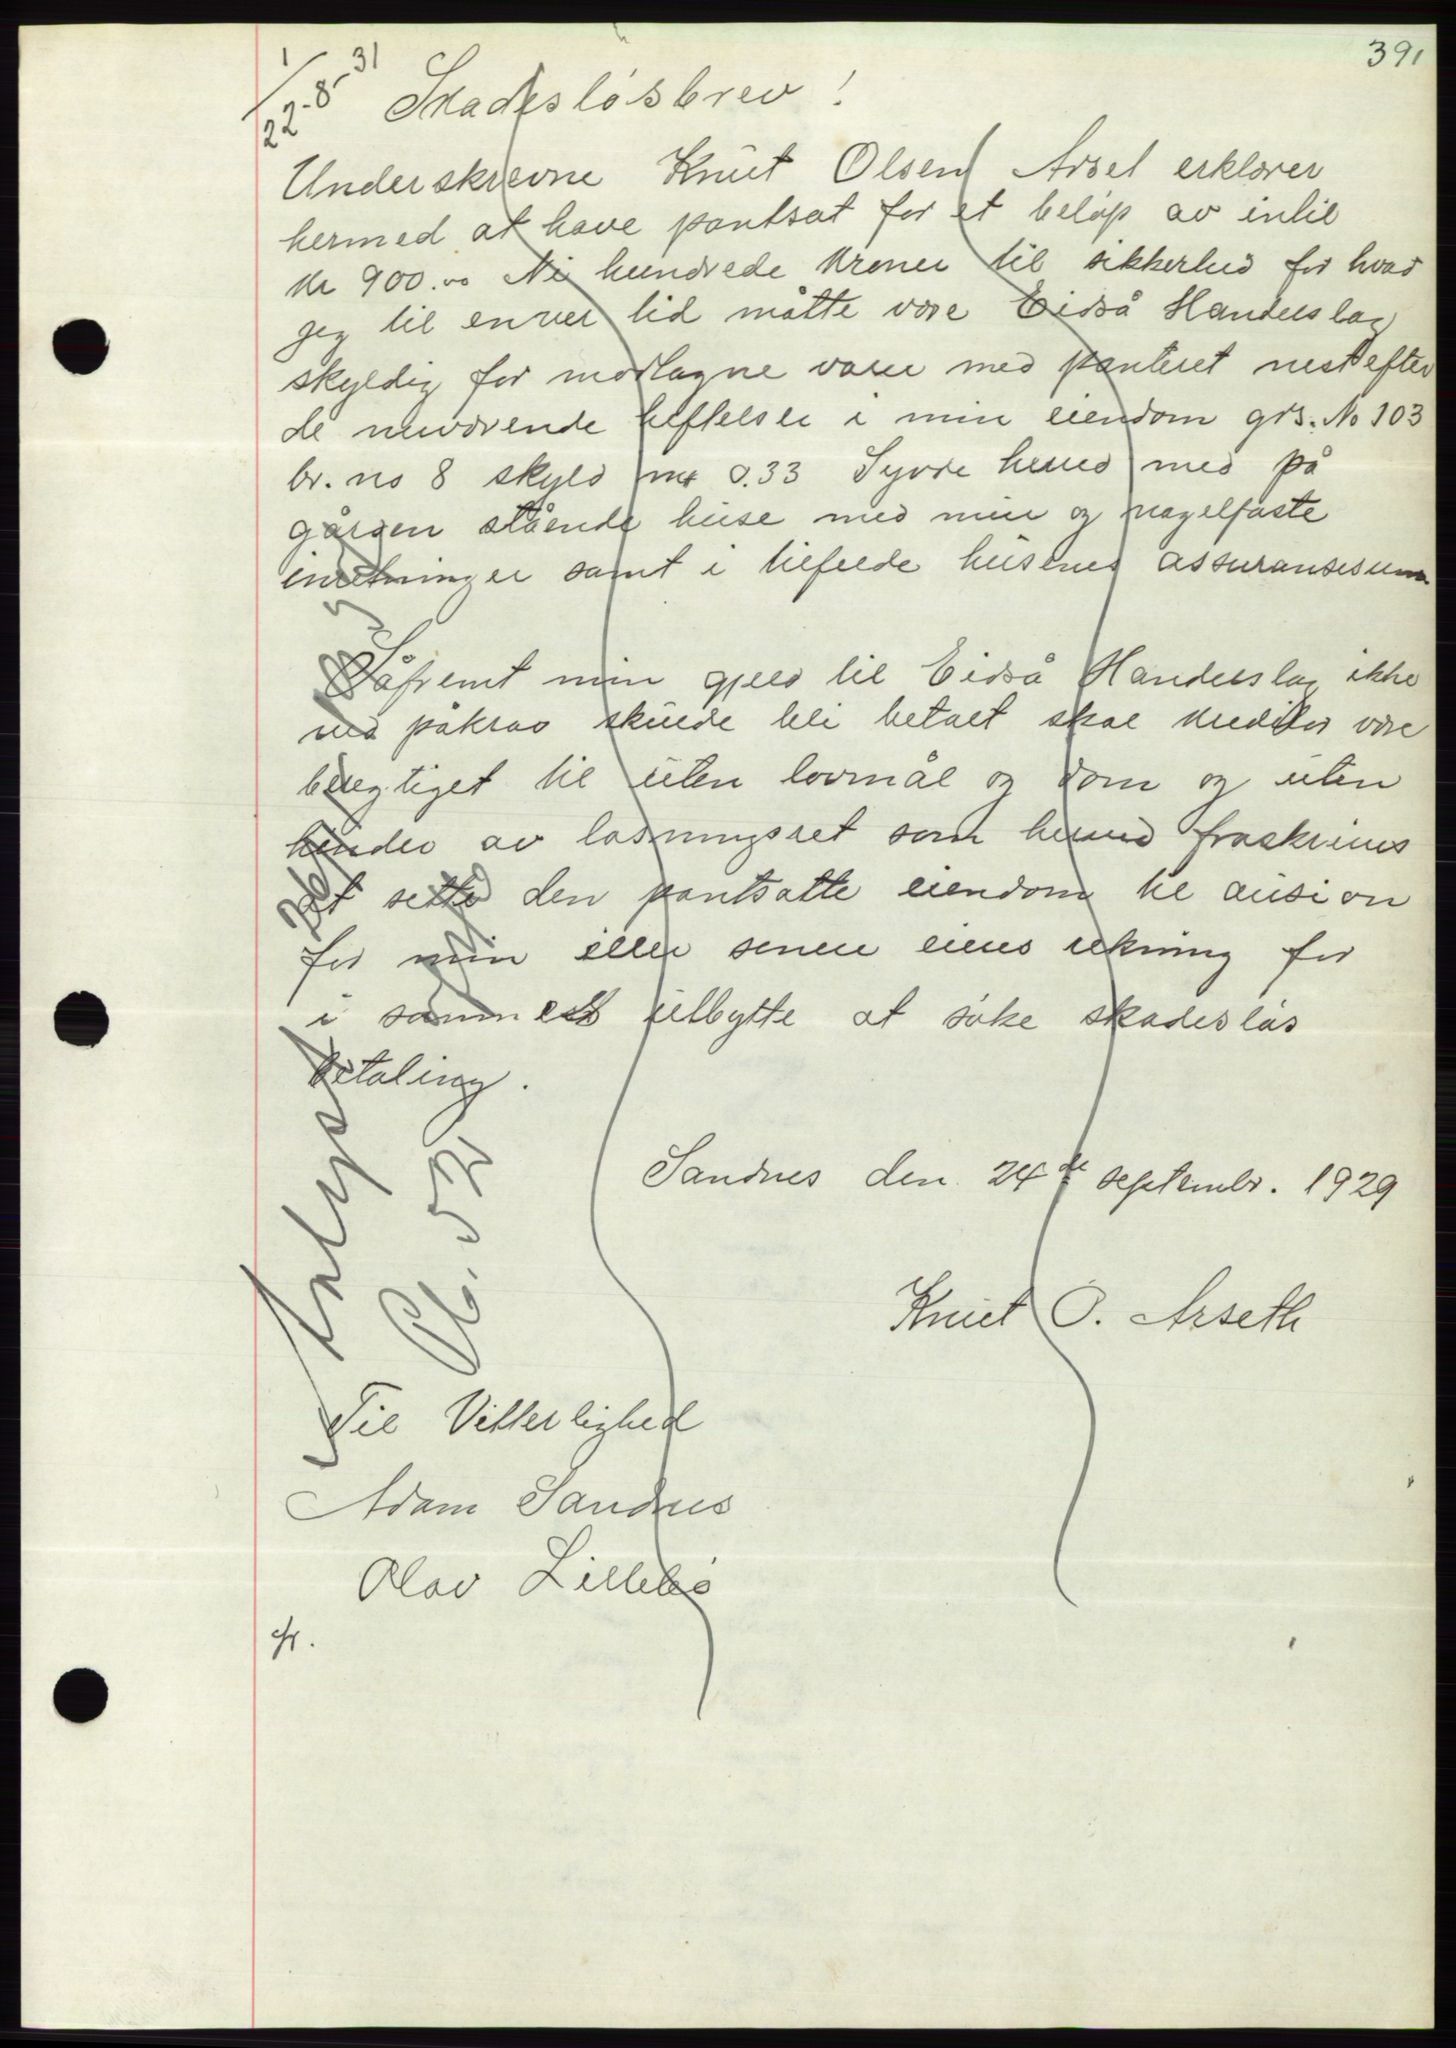 391
1/22-8-31
Skadesløsbrev!
Underskrevne Knut Olsen Årset erklærer
hermed at have pantsat for et beløp av intil
kr 900.00 Ni hundrede kroner til sikkerhed for hvad
jeg til enver tid måtte være Eidså Handelslag
skyldig for modtagne varer med panteret nest efter
de nuværende heftelser i min eiendom grs. No 103
br. no 8 skyld mrk 0.33 Syvde herred med på
gården stående huse med mur og nagelfaste
inretninger samt i tilfelde husenes assuransesum.
Såfremt min gjeld til Eidså Handelslag ikke
ved påkrav skulde bli betalt skal kreditor være
beregtiget til uten lovmål og dom og uten
hinder av løsningsret som herved fraskrives
at sette den pantsatte eiendom til ausion
for min eller senere eiers rekning for
i sammes utbytte at søke skadesløs
betaling.
Sandnes den 24de septembr. 1929
Knut O. Årseth
Til Vitterlighed
Adam Sandnes
Olav Lillebø
Avlyst
Pb. 52